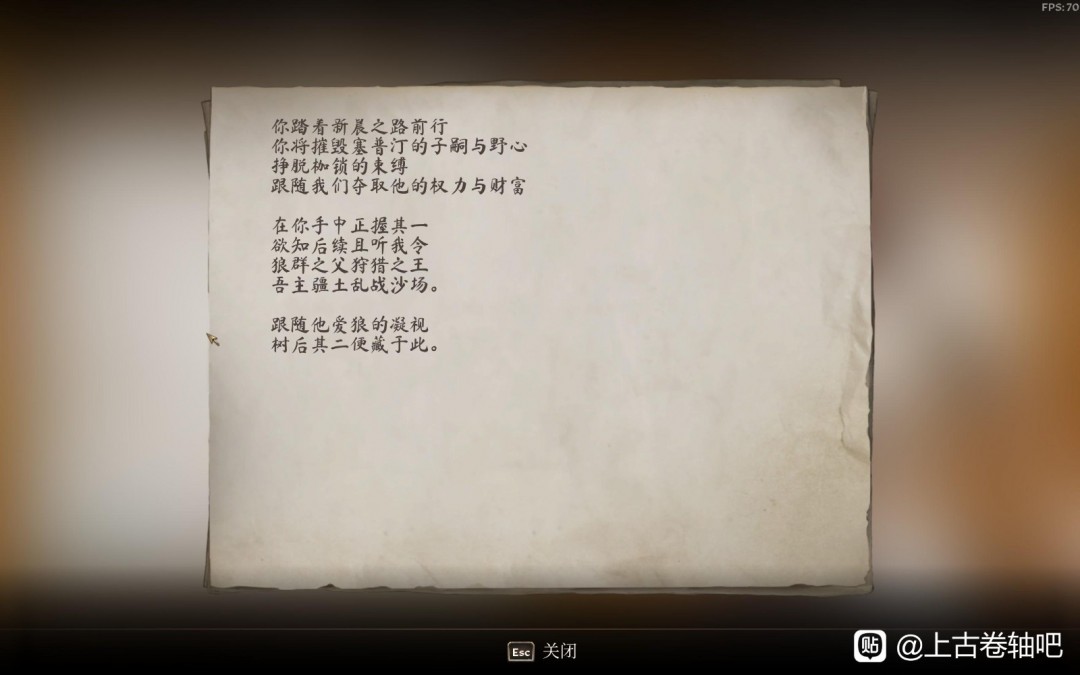 FPS: 70
你踏着新晨之路前行
你将摧毁塞普汀的子嗣与野心
挣脱枷锁的束缚
跟随我们夺取他的权力与财富
在你手中正握其一
欲知后续且听我令
狼群之父狩猎之王
吾主疆土乱战沙场。
跟随他爱狼的凝视
树后其二便藏于此。
Esc 关闭
贴 @上古卷轴吧